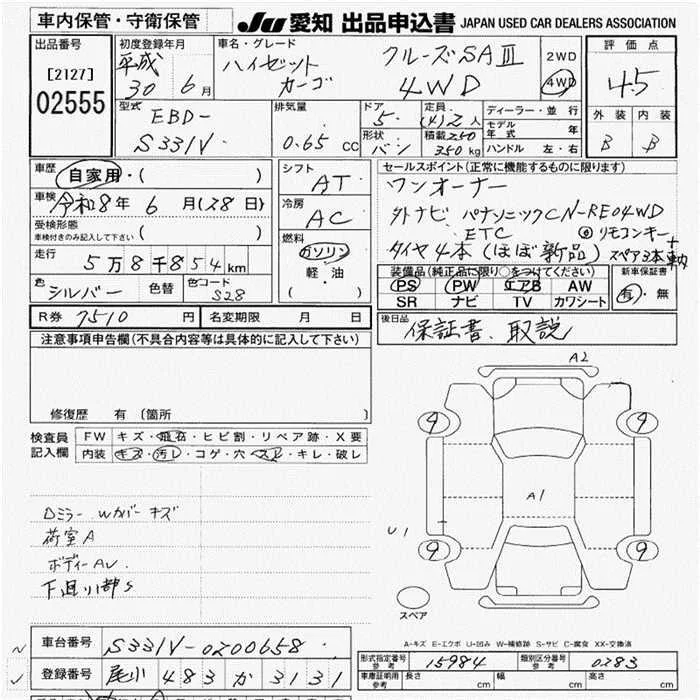 車内保管・守衛保管
JU 愛知 出品申込書 JAPAN USED CAR DEALERS ASSOCIATION
出品番号
[2127]
02555
初度登録年月
平成
30 6月
車名・グレード
ハイゼット
カーゴ
クルーズSAⅢ
4WD
2WD
4WD
評価点
4.5
外装 内装
B B
型式
EBD-
S331V
排気量
0.65 cc
ドア
5
形状
バン
定員
(4)2人
積載 250
350 kg
ディーラー・並行
モデル年式 年
ハンドル 左・右
車歴
自家用・( )
車検
令和8年 6月(28日)
受検形態
車検付きのみ記入して下さい ( )
走行
5万8千854km
色
シルバー
色替
色コード
S28
シフト
AT
冷房
AC
燃料
ガソリン
軽・油
( )
セールスポイント(正常に機能するものに限ります)
ワンオーナー
外ナビ パナソニックCN-RE04WD
ETC ◎リモコンキー
タイヤ4本(ほぼ新品) スペア3本+車内
装備品(純正品に限り○をつけてください)
PS PW エアB AW
SR ナビ TV カワシート
新車保証書
有・無
R券 7510 円 名変期限 月 日
後日品
保証書、取説
注意事項申告欄(不具合内容等は具体的に記入して下さい)
修復歴 有 〔箇所 〕
検査員
記入欄
FW キズ・飛石・ヒビ割・リペア跡・X要
内装 キズ・汚レ・コゲ・穴・スレ・キレ・破レ
Dミラー Wカバーキズ
荷室A
ボディーAU.
下廻り部S
A2
4 9
A1
U1
9 9
スペア
A-キズ E-エクボ U-凹み W-補修跡 S-サビ C-腐食 XX-交換済
車台番号 S331V-0200658
登録番号 尾小 483 か 3131
形式指定番号
参考
15984
類別区分番号
参考
0283
車庫証明用
参考
長さ cm 幅 cm 高さ cm